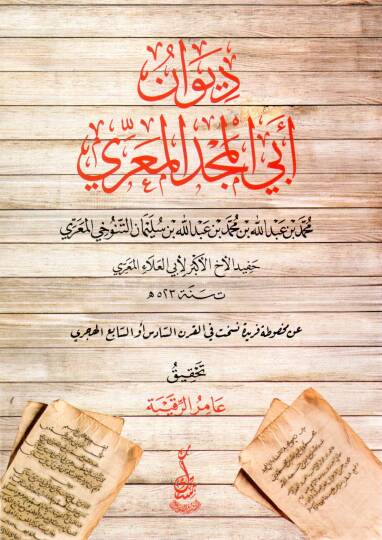 ديوان
أبي المجد المعري
محمد بن عبد الله بن محمد بن عبد الله بن سليمان التنوخي المعري
حفيد الأخ الأكبر لأبي العلاء المعري
ت سنة ٥٢٣ هـ
عن مخطوطة فريدة نسخت في القرن السادس أو السابع الهجري
تحقيق
عامر الرقيبة